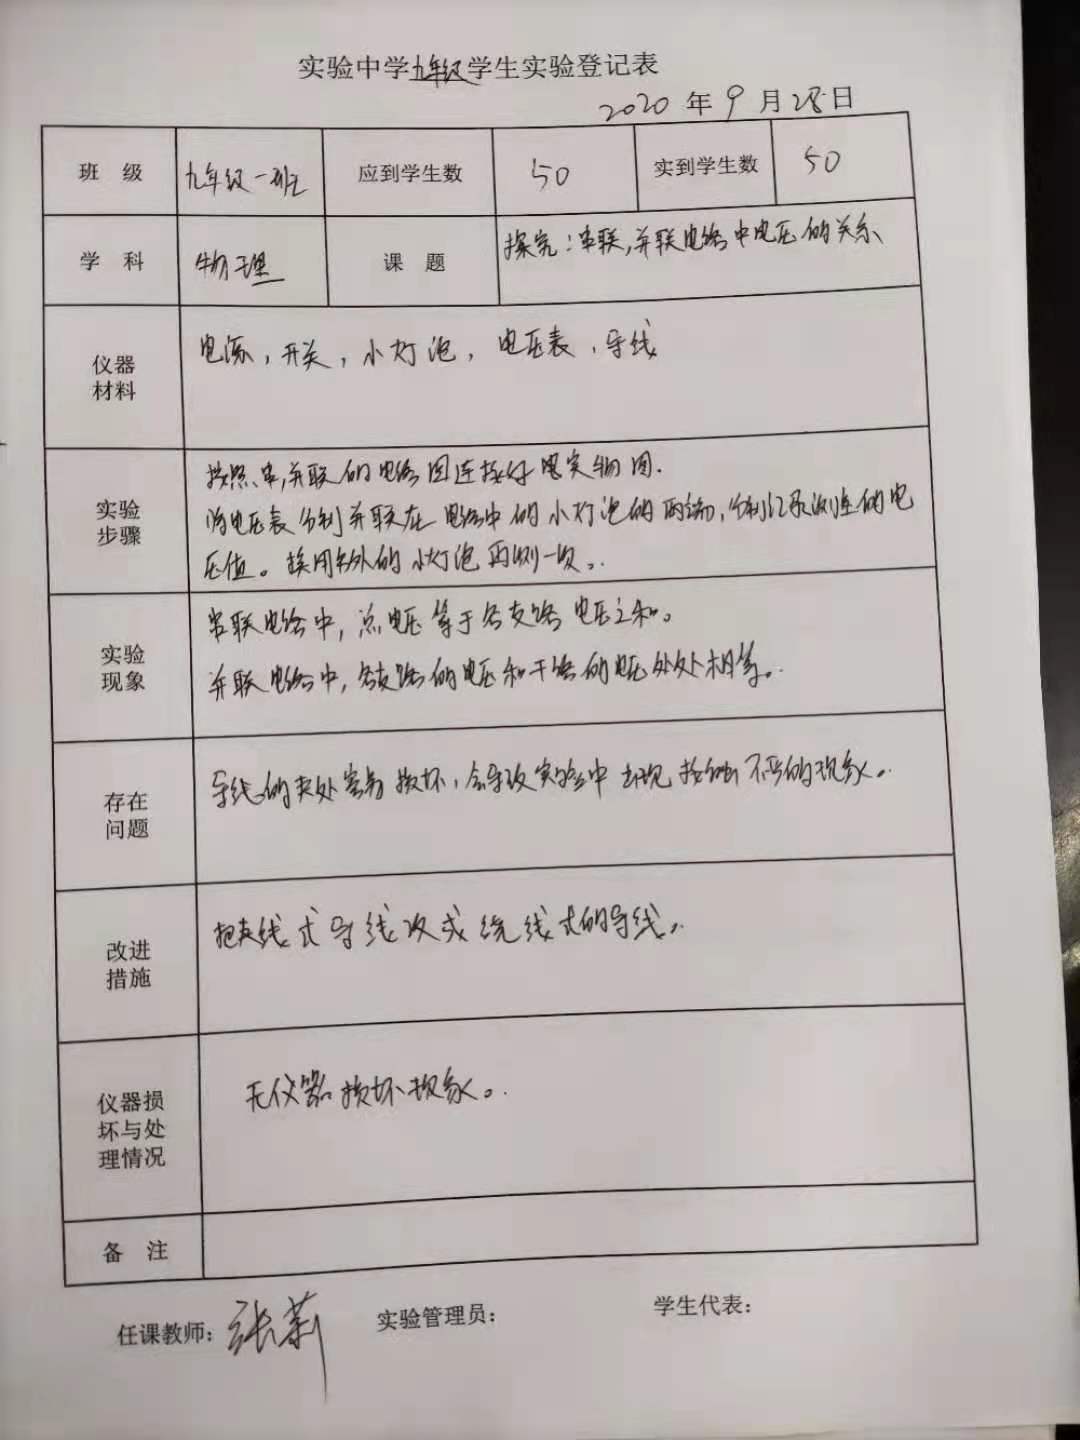 实验中学九年级学生实验登记表
2020年9月28日
班 级 九年级一班 应到学生数 50 实到学生数 50
学 科 物理 课 题 探究:串联,并联电路中电压的关系
仪器
材料
电源,开关,小灯泡,电压表,导线
实验
步骤
按照串,并联的电路图连接好电实物图.
将电压表分别并联在电路中的小灯泡的两端,分别记录测量的电
压值。换用另外的小灯泡再测一次。
实验
现象
串联电路中,总电压等于各支路电压之和。
并联电路中,各支路的电压和干路的电压处处相等。
存在
问题
导线的夹处容易损坏,会导致实验中出现接触不良的现象。
改进
措施
把夹线式导线改成绕线式的导线。
仪器损
坏与处
理情况
无仪器损坏现象。
备 注
任课教师:张莉 实验管理员: 学生代表: